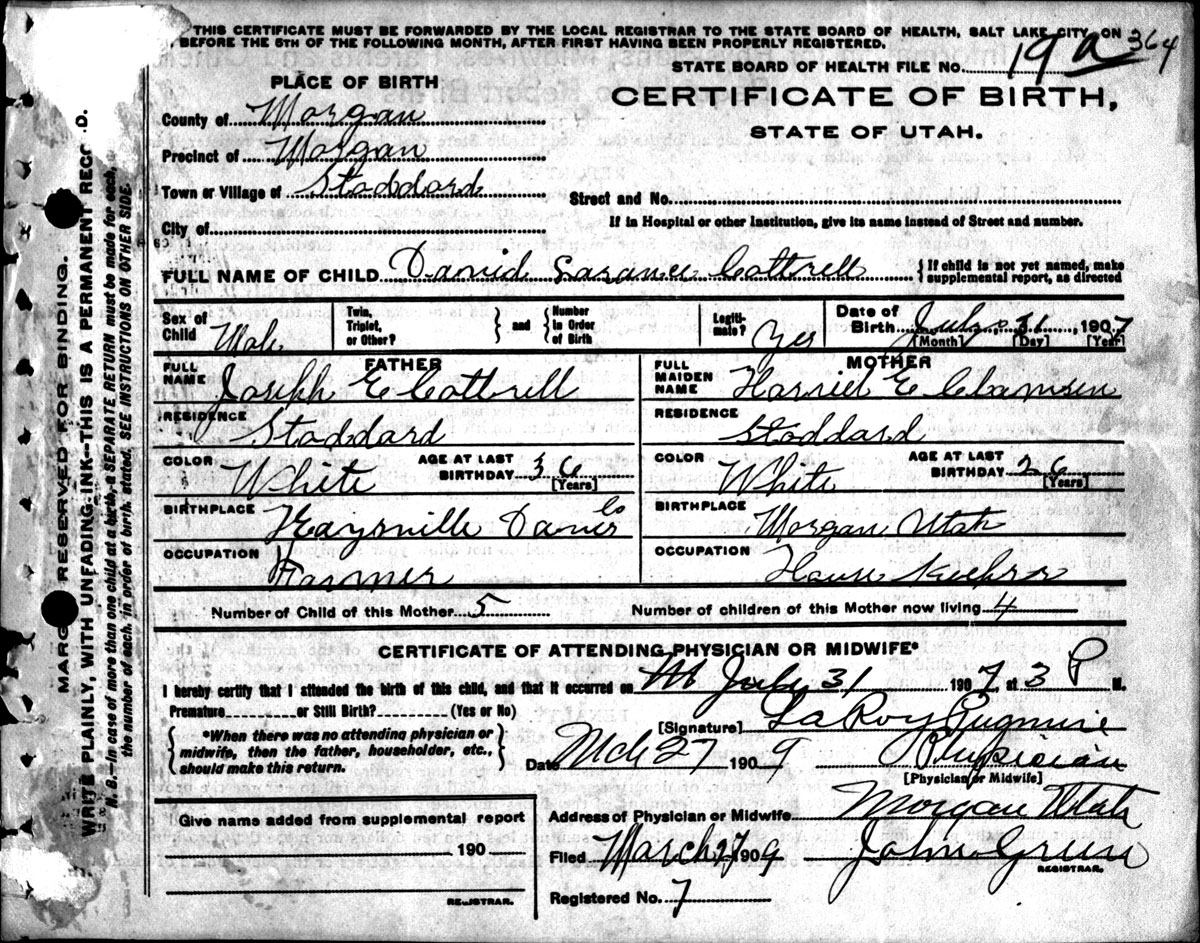 THIS CERTIFICATE MUST BE FORWARDED BY THE LOCAL REGISTRAR TO THE STATE BOARD OF HEALTH, SALT LAKE CITY, ON
BEFORE THE 5TH OF THE FOLLOWING MONTH, AFTER FIRST HAVING BEEN PROPERLY REGISTERED.
STATE BOARD OF HEALTH FILE No. 19 a 364
PLACE OF BIRTH
CERTIFICATE OF BIRTH,
STATE OF UTAH.
County of Morgan
Precinct of Morgan
Town or Village of Stoddard
Street and No.
City of
If in Hospital or other Institution, give its name instead of Street and number.
FULL NAME OF CHILD David Cottrell
{ If child is not yet named, make
supplemental report, as directed
Sex of Child Male
Twin, Triplet, or Other? } and { Number in Order of Birth
Legiti-mate? Yes
Date of Birth July 31, 1907
[Month] [Day] [Year]
FATHER
FULL NAME Joseph E Cottrell
RESIDENCE Stoddard
COLOR White AGE AT LAST BIRTHDAY 36 [Years]
BIRTHPLACE Kaysville Davis Co
OCCUPATION Farmer
MOTHER
FULL MAIDEN NAME Harriet E
RESIDENCE Stoddard
COLOR White AGE AT LAST BIRTHDAY 26 [Years]
BIRTHPLACE Morgan Utah
OCCUPATION House Keeper
Number of Child of this Mother 5 Number of children of this Mother now living 4
CERTIFICATE OF ATTENDING PHYSICIAN OR MIDWIFE*
I hereby certify that I attended the birth of this child, and that it occurred on July 31 1907, at 3 P M.
Premature or Still Birth? (Yes or No)
{ *When there was no attending physician or
midwife, then the father, householder, etc.,
should make this return. }
[Signature] LaRoy Pugmire
Date Mch 27 1909 Physician
[Physician or Midwife]
Give name added from supplemental report
190
REGISTRAR.
Address of Physician or Midwife Morgan Utah
Filed March 27 1909 John Green
REGISTRAR.
Registered No. 7
MARG RESERVED FOR BINDING.
WRITE PLAINLY, WITH UNFADING INK--THIS IS A PERMANENT RECO D.
N. B.—In case of more than one child at a birth, a SEPARATE RETURN must be made for each,
the number of each, in order of birth, stated. SEE INSTRUCTIONS ON OTHER SIDE.